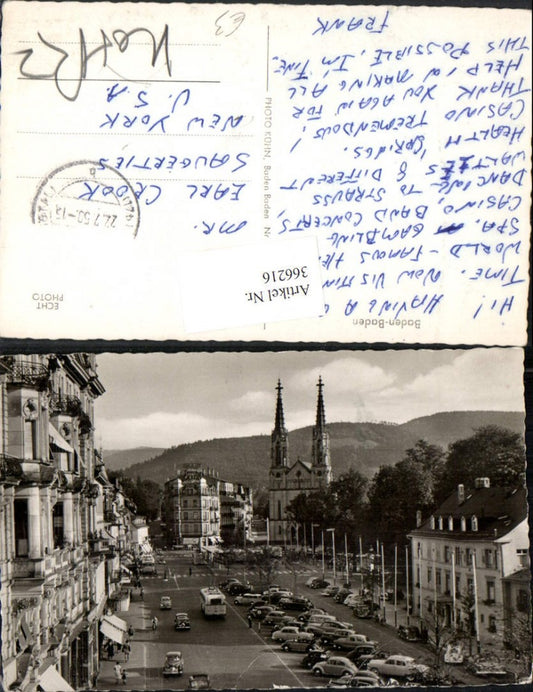 Hi!
HAVING A G
TIME. NOW VISITIN
WORLD-FAMOUS HE
SPA. GAMBLING
CASINO, BAND CONCERTS,
DANCING TO STRAUSS
WALTZES & DIFFERENT
HEALTH SPRINGS.
CASINO TREMENDOUS!
THANK YOU AGAIN FOR
HELP IN MAKING ALL
THIS POSSIBLE, I'M TINE,
FRANK
MR.
EARL CROOK
SAUGERTIES
NEW YORK
U.S.A.
PHOTO KÜHN, Baden Baden, Nr.
Baden-Baden
ECHT
PHOTO
Artikel Nr.
366216